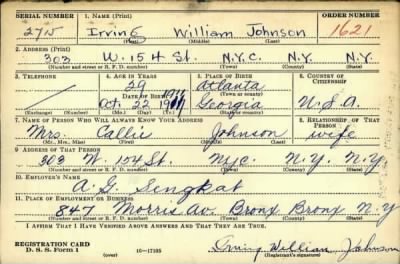 SERIAL NUMBER 1. NAME (Print) ORDER NUMBER
2715 Irving William Johnson 1621
(First) (Middle) (Last)
2. ADDRESS (Print)
303 W. 154 St. N.Y.C. N.Y. N.Y.
(Number and street or R. F. D. number) (Town) (County) (State)
3. TELEPHONE 4. AGE IN YEARS 5. PLACE OF BIRTH 6. COUNTRY OF CITIZENSHIP
Atlanta
DATE OF BIRTH (Town or county)
Oct. 22 Georgia U.S.A
(Exchange) (Number) (Mo.) (Day) (Yr.) (State or country)
7. NAME OF PERSON WHO WILL ALWAYS KNOW YOUR ADDRESS 8. RELATIONSHIP OF THAT PERSON
Mrs. Callie Johnson wife
(Mr., Mrs., Miss) (First) (Middle) (Last)
9. ADDRESS OF THAT PERSON
303 W. 154 St. NYC. N.Y. N.Y.
(Number and street or R. F. D. number) (Town) (County) (State)
10. EMPLOYER'S NAME
A. G.
11. PLACE OF EMPLOYMENT OR BUSINESS
847 Morris Av. Bronx Bronx N.Y
(Number and street or R. F. D. number) (Town) (County) (State)
I AFFIRM THAT I HAVE VERIFIED ABOVE ANSWERS AND THAT THEY ARE TRUE.
REGISTRATION CARD
D. S. S. Form 1 (over) 16—17105 Irving William Johnson
(Registrant's signature)